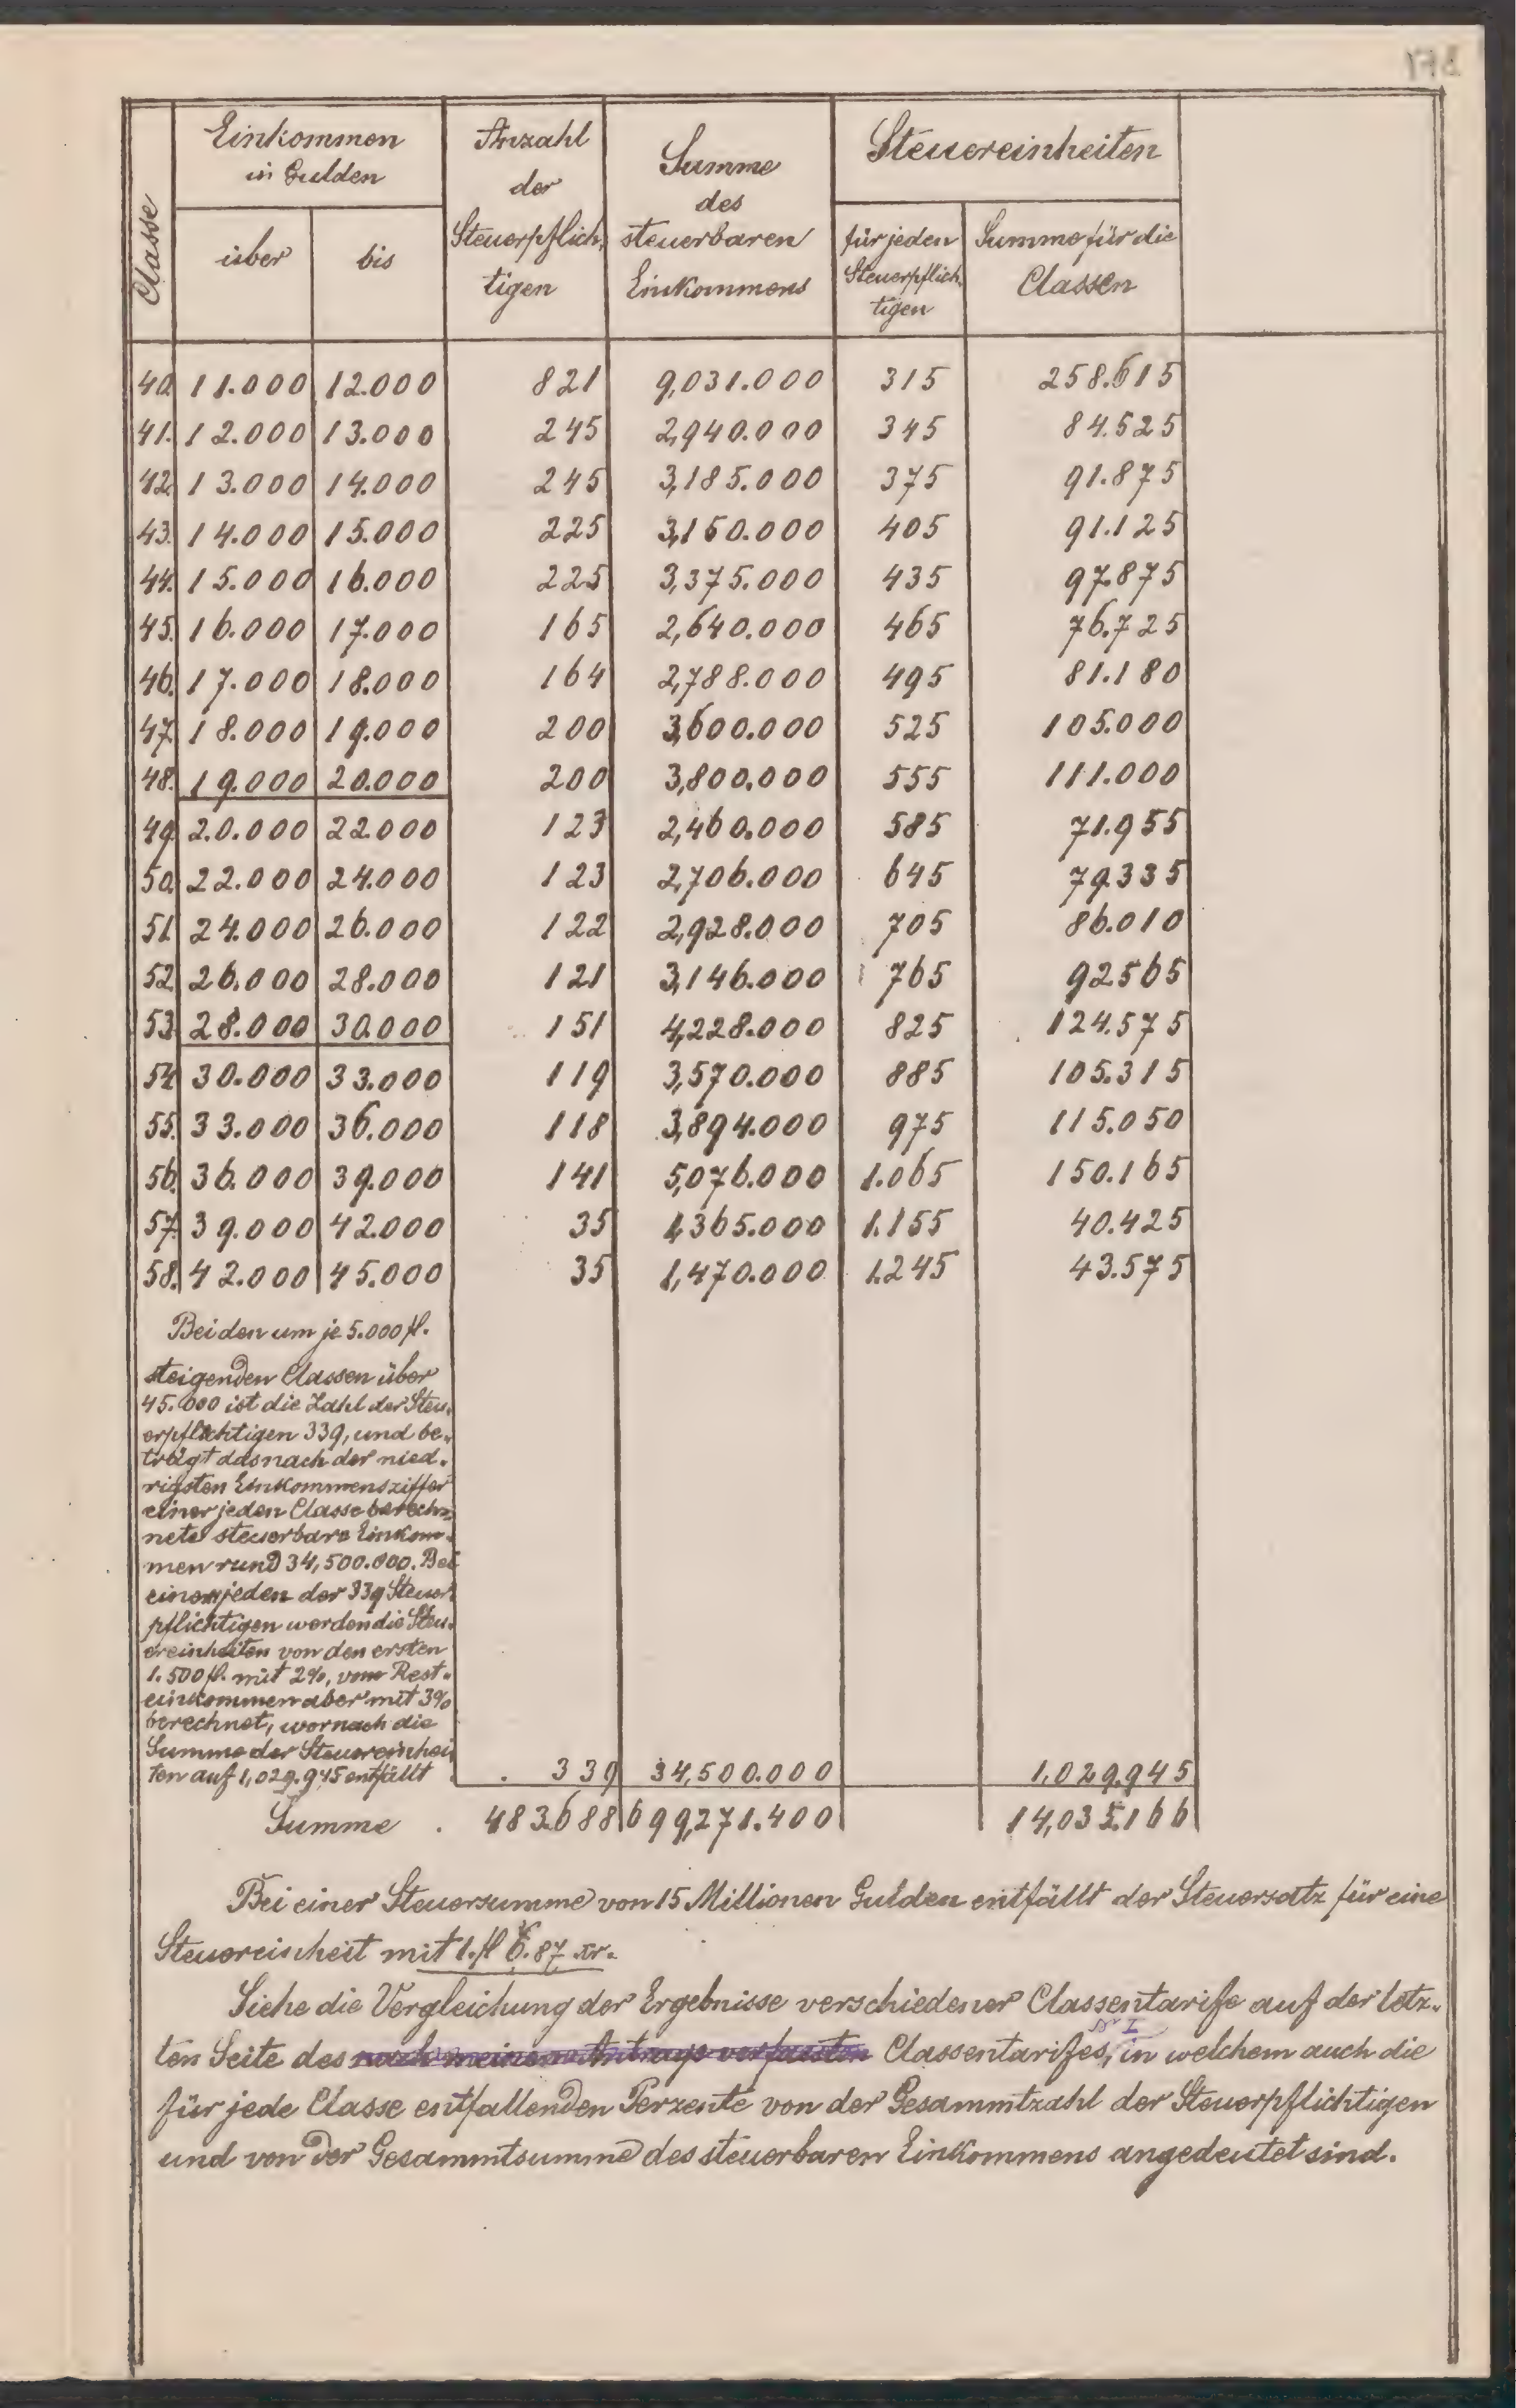 Classe
Einkommen
in Gulden
über
bis
Anzahl
der
Steuerpflich-
tigen
Summe
des
steuerbaren
Einkommens
Steuereinheiten
für jeden
Steuerpflich-
tigen
Summe für die
Classen
40. 11.000 12.000 821 9,031.000 315 258.615
41. 12.000 13.000 245 2,940.000 345 84.525
42. 13.000 14.000 245 3,185.000 375 91.875
43. 14.000 15.000 225 3,150.000 405 91.125
44. 15.000 16.000 225 3,375.000 435 97.875
45. 16.000 17.000 165 2,640.000 465 76.725
46. 17.000 18.000 164 2,788.000 495 81.180
47. 18.000 19.000 200 3,600.000 525 105.000
48. 19.000 20.000 200 3,800.000 555 111.000
49. 20.000 22.000 123 2,460.000 585 71.955
50. 22.000 24.000 123 2,706.000 645 79.335
51. 24.000 26.000 122 2,928.000 705 86.010
52. 26.000 28.000 121 3,146.000 765 92565
53. 28.000 30.000 151 4,228.000 825 124.575
54. 30.000 33.000 119 3,570.000 885 105.315
55. 33.000 36.000 118 3,894.000 975 115.050
56. 36.000 39.000 141 5,076.000 1.065 150.165
57. 39.000 42.000 35 1,365.000 1.155 40.425
58. 42.000 45.000 35 1,470.000 1.245 43.575
Bei den um je 5.000 fl.
steigenden Classen über
45.000 ist die Zahl der Steu-
erpflichtigen 339, und be-
trägt das nach der nied-
rigsten Einkommensziffer
einer jeden Classe berech-
nete steuerbare Einkom-
men rund 34,500.000. Bei
einem jeden der 339 Steuer-
pflichtigen werden die Steu-
ereinheiten von den ersten
1.500 fl. mit 2%, vom Rest-
einkommen aber mit 3%
berechnet, wornach die
Summe der Steuereinhei-
ten auf 1,029.945 entfällt . 339 34,500.000 1,029.945
Summe . 483.688 699,271.400 14,035.166
Bei einer Steuersumme von 15 Millionen Gulden entfällt der Steuersatz für eine
Steuereinheit mit 1. fl 6.87 xr.
Siehe die Vergleichung der Ergebnisse verschiedener Classentarife auf der letz-
ten Seite des nach meinem Antrage verfassten Classentarifes, Nr I in welchem auch die
für jede Classe entfallenden Perzente von der Gesammtzahl der Steuerpflichtigen
und von der Gesammtsumme des steuerbaren Einkommens angedeutet sind.